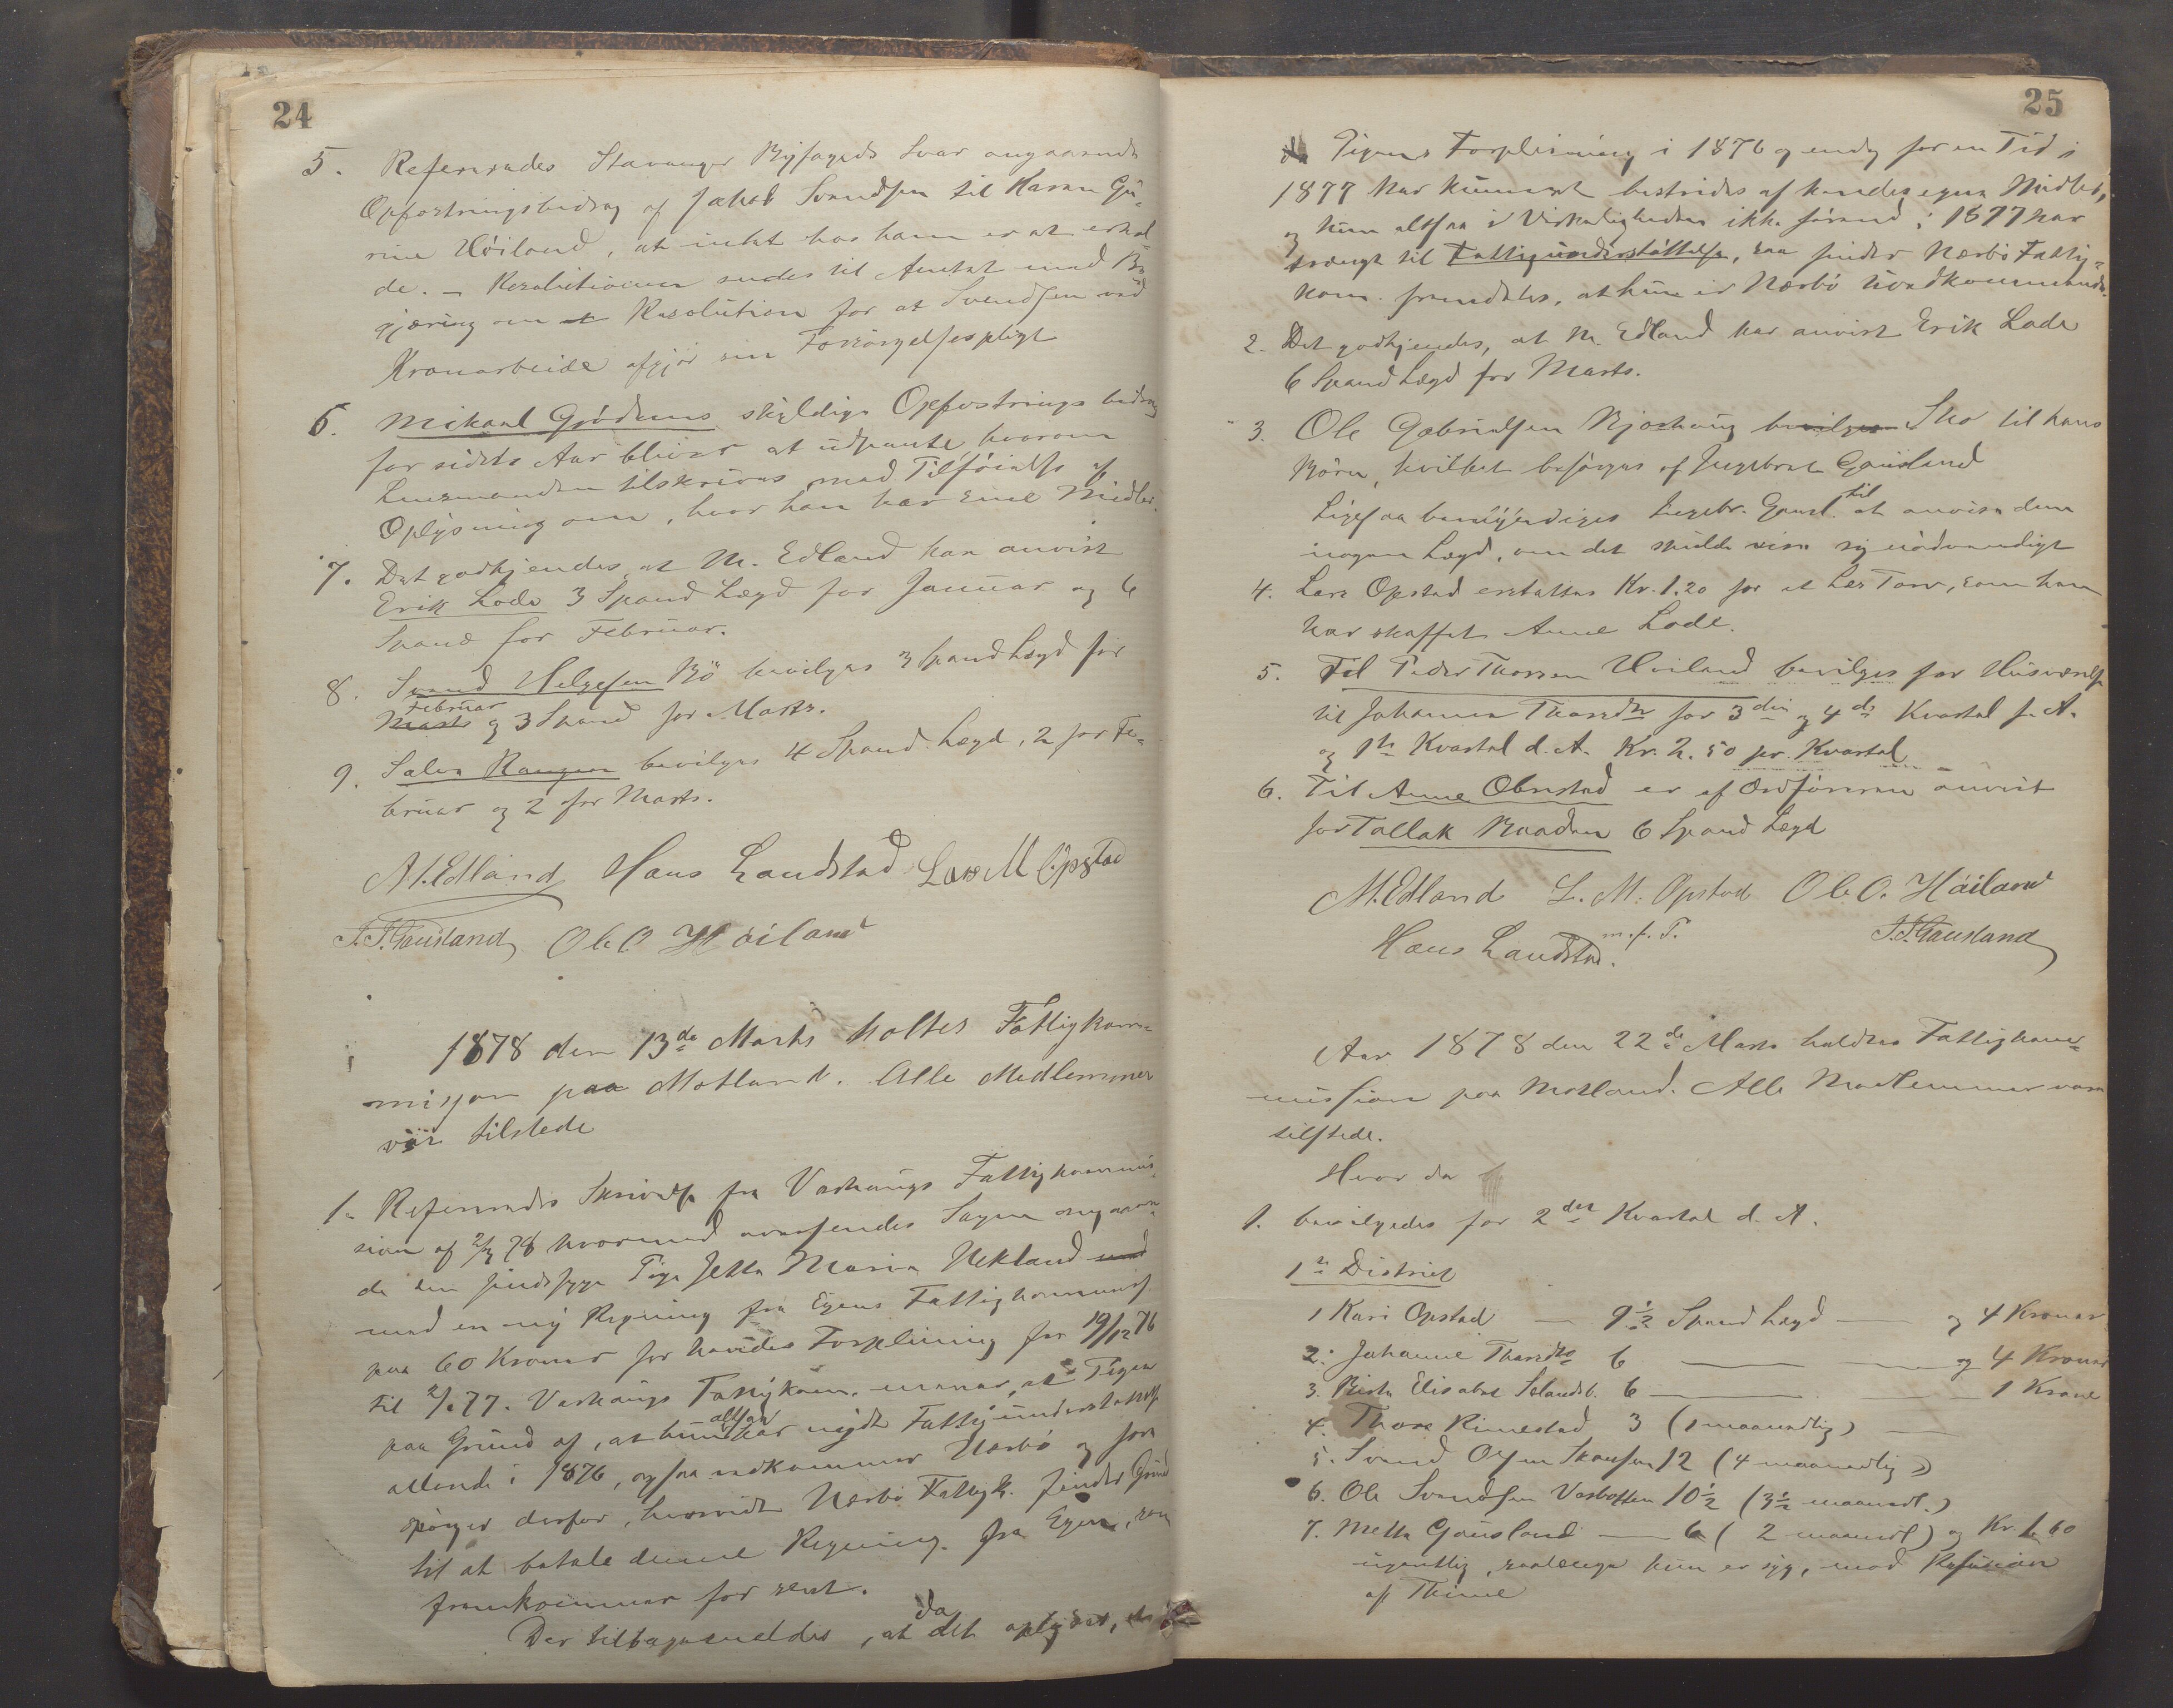 24
5. Refereredes Stavanger Byfogeds Svar angaaende
Opfostringsbidrag af Jakob Svendsen til Karen Gu-
rine Höiland, at intet hos ham er at erhol-
de. – Resolutionen sendes til Amtet med Be-
gjæring om at Resolution for at Svendsen ved
Kronarbeide afgjör sin Forsörgelsespligt
6. Mikael Gjödens skyldige Opfostringsbidrag
for sidste Aar bliver at udpante, hvorom
Lensmanden tilskrives med Tilföielse af
Oplysning om, hvor han har sine Midler.
7. Det godkjendes, at M. Edland har anvist
Erik Lode 3 Spand Lægd for Januar og 6
Spand for Februar.
8. Svend Helgesen Bö bevilges 3 Spand Lægd for
Februar
Marts og 3 Spand for Marts.
9. Salen Rangen bevilges 4 Spand Lægd, 2 for Fe-
bruar og 2 for Marts.
M. Edland Hans Laudstad Lars M Opstad
T. T. Gausland Ole O Höiland
1878 den 13de Marts holtes Fattigkom-
misjon paa Motland. Alle Medlemmer
var tilstede
1. Refereredes Skrivelse fra Varhaugs Fattigkommis-
sion af 2/3 78 hvormed oversendes Sagen angaaen-
de den sindssyge Pige Jette Maria Vekland med
med en ny Regning fra Egens Fattigkommiss.
paa 60 Kroner for hendes Forpleining fra 19/12 76
til 2/2 77. Varhaugs Fattigkom. mener, at Pigen
paa Grund af, at hun altsaa har nydt Fattigunderstöttelse
allerede i 1876, ogsaa vedkommer Nærbö og fore-
spörger derfor, hvorvidt Nærbö Fattigk. finder Grund
til at betale denne Regning fra Egen, som
fremkommer for sent.
Der tilbagemeldes, at da det oplyses, at
25
da Pigens Forpleining i 1876 og endog for en Tid i
1877 har kunnet bestrides af hendes egne Midler,
og hun altsaa i Virkeligheden ikke förend i 1877 har
trængt til Fattigunderstöttelse, saa finder Nærbö Fattig-
kom. fremdeles, at hun er Nærbö uvedkommende.
2. Det godkjendes, at M. Edland har anvist Erik Lode
6 Spand Lægd for Marts.
3. Ole Gabrielsen Bjorhaug bevilges Sko til hans
Börn, hvilket besörges af Ingebret Gausland
Ligesaa bemyndiges Ingebr. Gausl. til at anvise dem
nogen Lægd, om det skulde vise sig nödvendigt
4. Lars Opstad erstattes Kr. 1.20 for et Læs Torv, som han
har skaffet Anne Lode.
5. Til Peder Thorsen Hoiland bevilges for Husværelse
til Johanne Thorsdtr for 3die og 4de Kvartal f. A.
og 1ste Kvartal d. A. Kr. 2.50 pr. Kvartal
6. Til Anne Obrestad er af Ordföreren anvist
for Tallak Braaden 6 Spand Lægd
M. Edland L. M. Opstad Ole O. Höiland
Hans Laudstad. m. f. P. T. T. Gausland
Aar 1878 den 22de Marts holdtes Fattigkom-
mission paa Motland. Alle Medlemmer vare
tilstede.
Hvor da
1. bevilgedes for 2det Kvartal d. A.
1ste District
1 Kari Opstad — 9½ Spand Lægd — og 4 Kroner
2. Johanne Thorsdtr 6 — — og 4 Kroner
3. Berta Elisabet Selandsb. 6 — — 1 Krone
4. Thore Rimestad 3 (1 maanedlig) —
5. Svend Olsen Skansen 12 (4 maanedlig)
6. Ole Svendsen Vasboften 10½ (3½ maanedl.)
7. Mette Gausland — 6 (2 maanedl) og Kr. 1.60
ugentlig, saalænge hun er syg, mod Refusion
af Thime